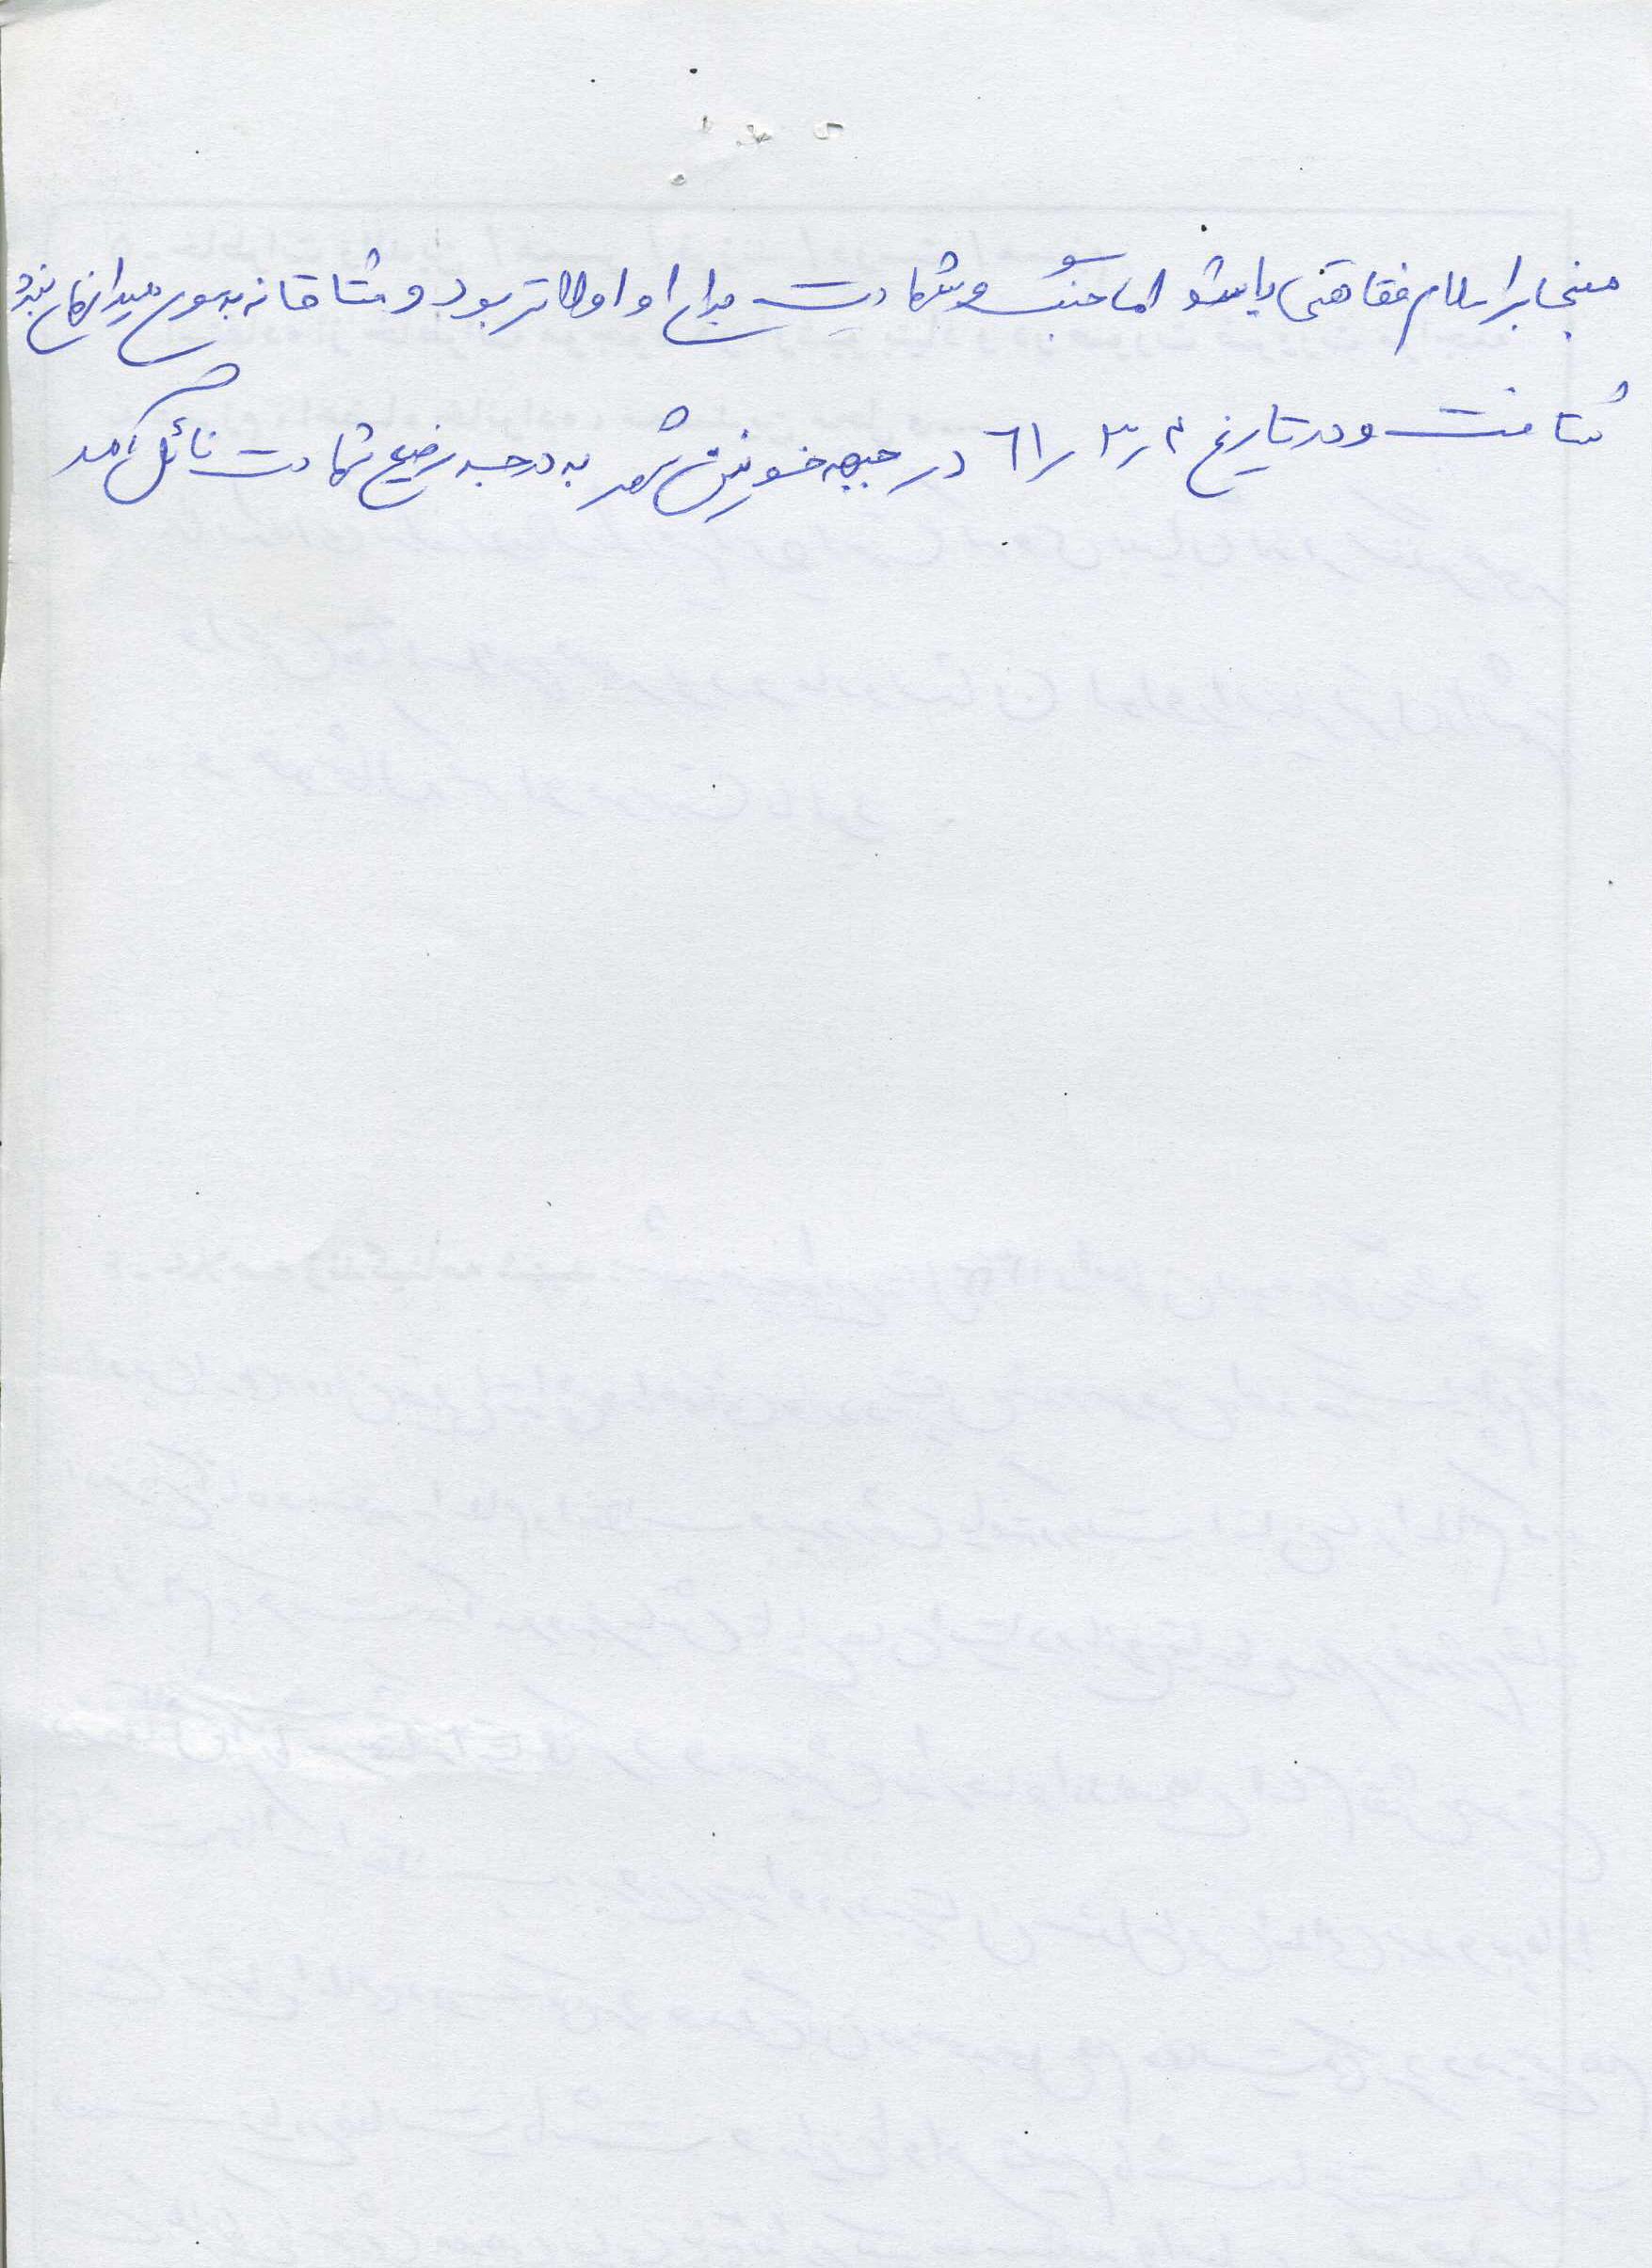 منجابر اسلام فقاهتی باشد اما جنگ و شهادت برای او اولاتر بود و مشتاقانه بسوی میدانهای نبرد
شتافت و در تاریخ ۲ر۳ر۶۱ در جبهه خونین شهر به درجه رفیع شهادت نائل آمد